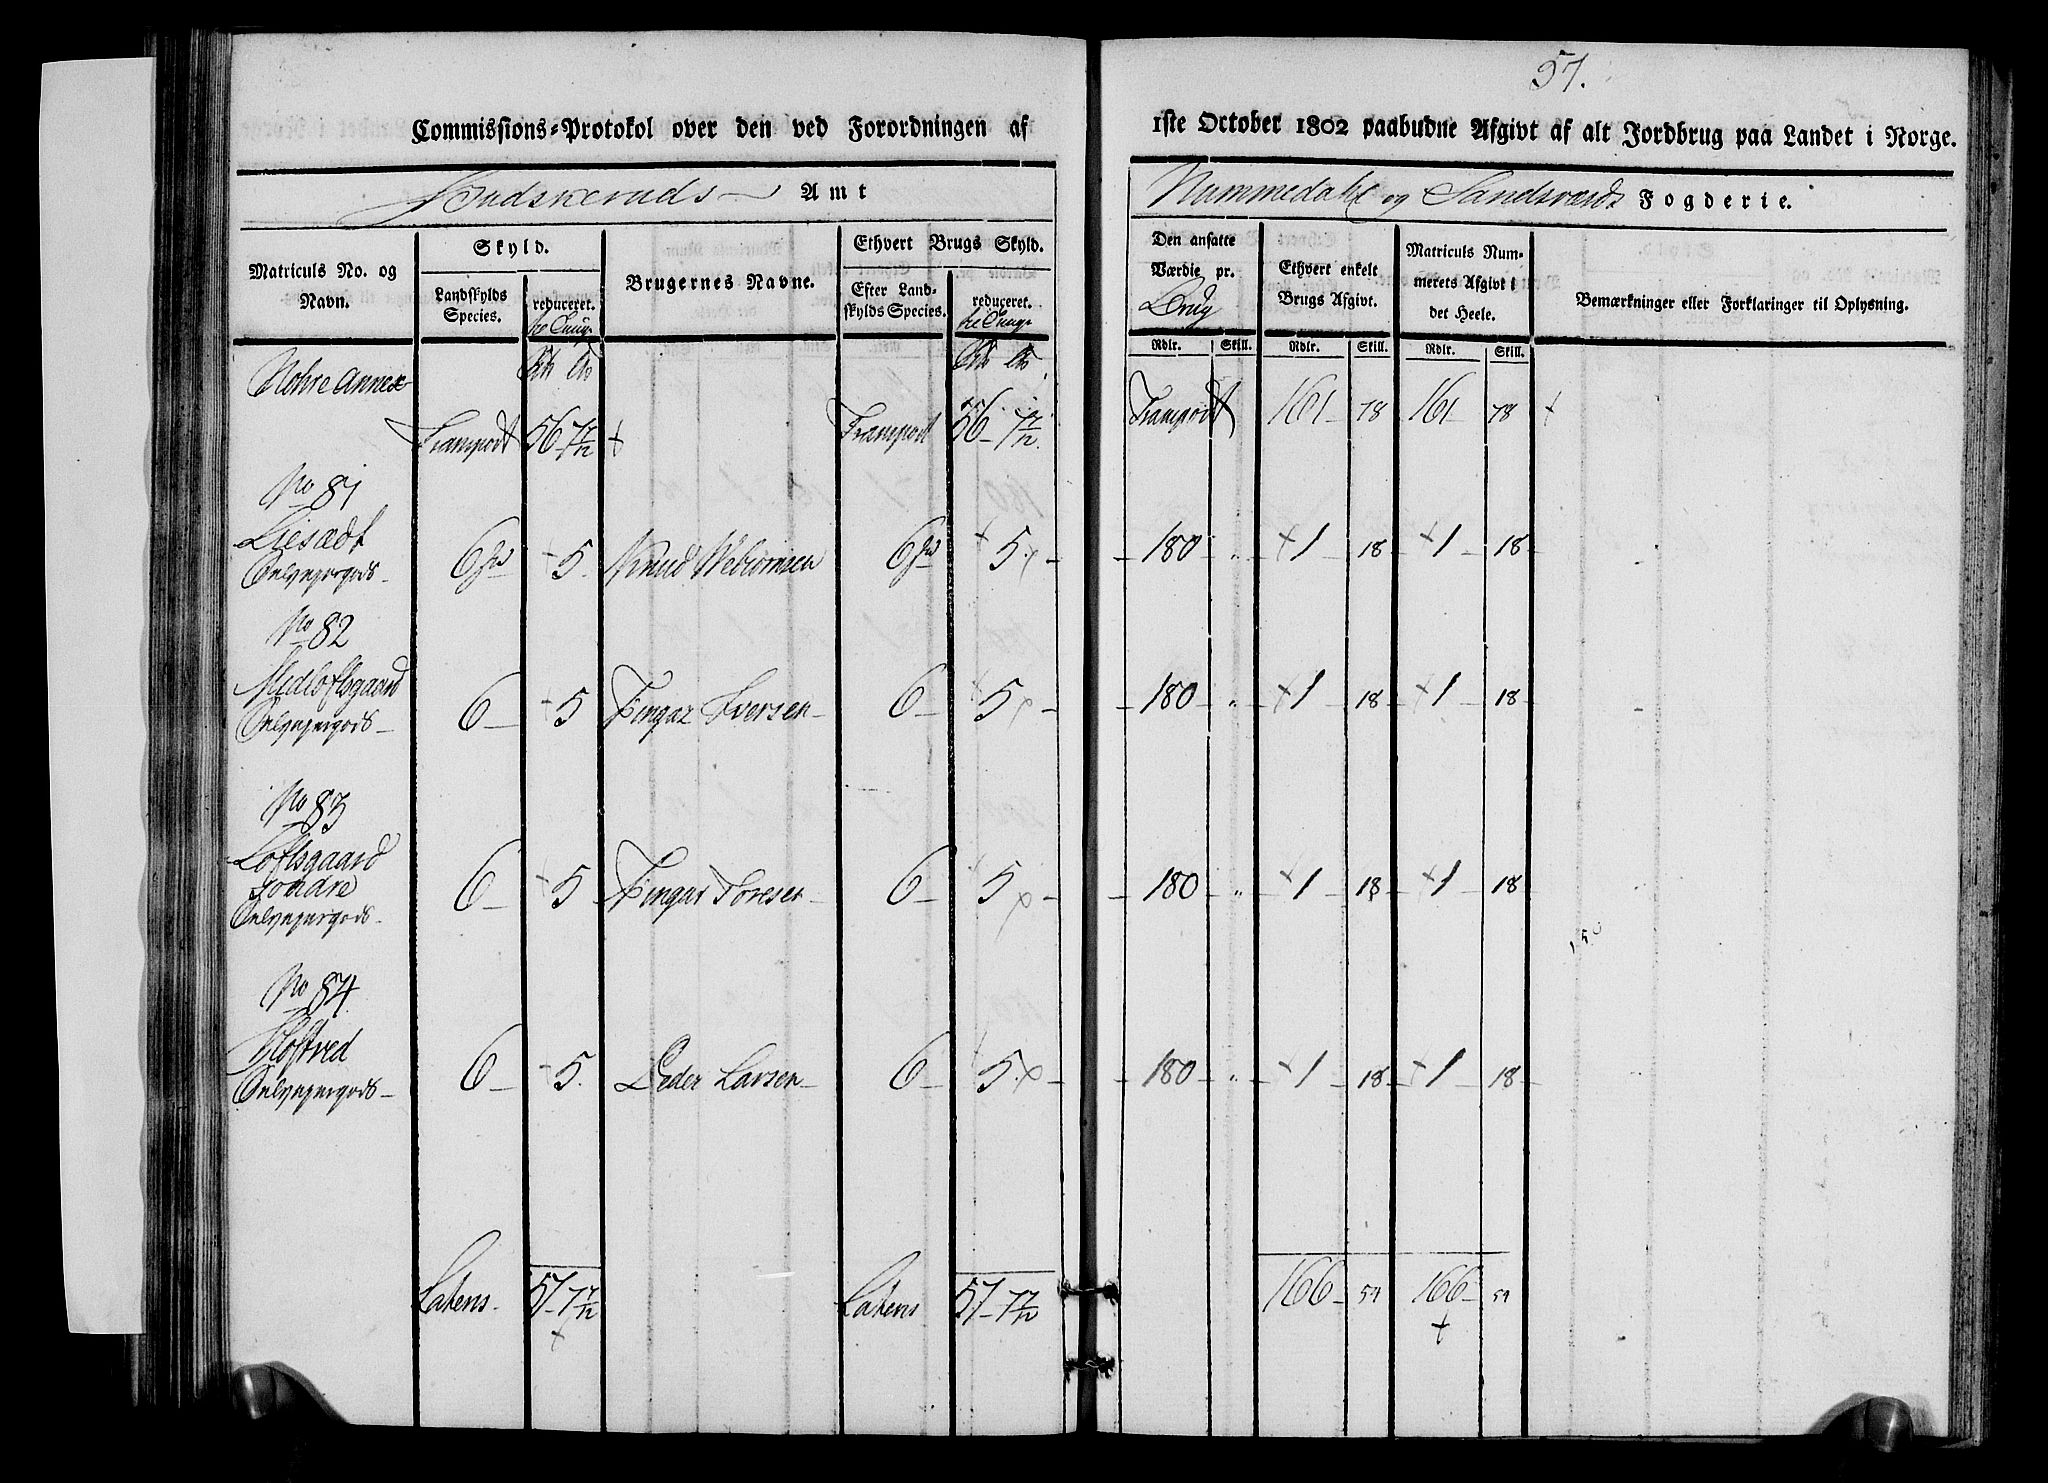 57.
Commissions-Protokol over den ved Forordningen af
1ste October 1802 paabudne Afgivt af alt Jordbrug paa Landet i Norge.
Budskeruds Amt
Nummedahl og Sandsværds Fogderie.
Matriculs No. og Navn.
Skyld.
Landskylds Species.
reduceret.
Brugernes Navne.
Ethvert Brugs Skyld.
Efter Landskylds Species.
reduceret.
Den ansatte Værdie pr.
Ethvert enkelt Brugs Afgivt.
Matriculs Nummerets Afgivt i det Heele.
Bemærkninger eller Forklaringer til Oplysning.
Rdlr. Skill. Rdlr. Skill. Rdlr. Skill.
Nohre Annex
Transport 56 - 7 7/12 Transport 56 - 7 7/12 Transport 161 78 161 78
No 81
Liesædt
Selvejergods 6 5. Knud 6 5. 180 " 1 18 1 18
No 82
Midlofftsgaard
Selvejergods 6 5 Tingar Iversen 6 5 180 " 1 18 1 18
No 83
Lofftsgaard
søndre
Selvejergods 6 5 Tingar Toresen 6 5 180 " 1 18 1 18
No 84
Kloftred
Selvejergods 6 5. Peder Larsen 6 5. 180 " 1 18 1 18
Latens 57 - 7 7/12 Latens 57 - 7 7/12 166 54 166 54